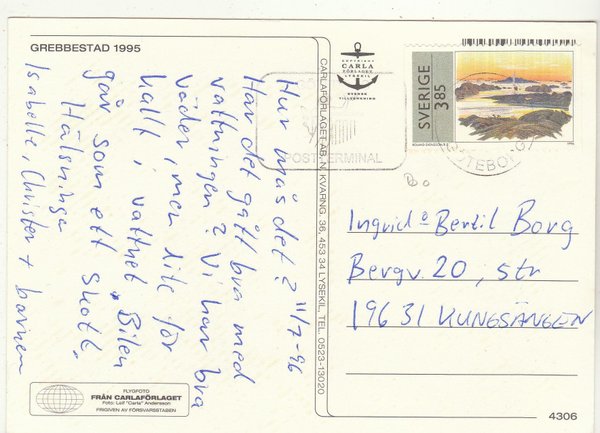 GREBBESTAD 1995
Hur mås det? 11/7-96
Har det gått bra med
vattningen? Vi har bra
väder, men lite för
kallt i vattnet. Bilen
går som ett skott.
Hälsningar
Isabelle, Christer + barnen
FLYGFOTO
FRÅN CARLAFÖRLAGET
Foto: Leif "Carla" Andersson
FRIGIVEN AV FÖRSVARSSTABEN
CARLAFÖRLAGET AB, N. KVARNG. 36, 453 34 LYSEKIL, TEL. 0523-13020
COPYRIGHT
CARLA
FÖRLAGET
LYSEKIL
SVENSK
TILLVERKNING
POSTTERMINAL
GÖTEBORG
SVERIGE 3.85
Ingrid o Bertil Borg
Bergv. 20, str
196 31 KUNGSÄNGEN
4306